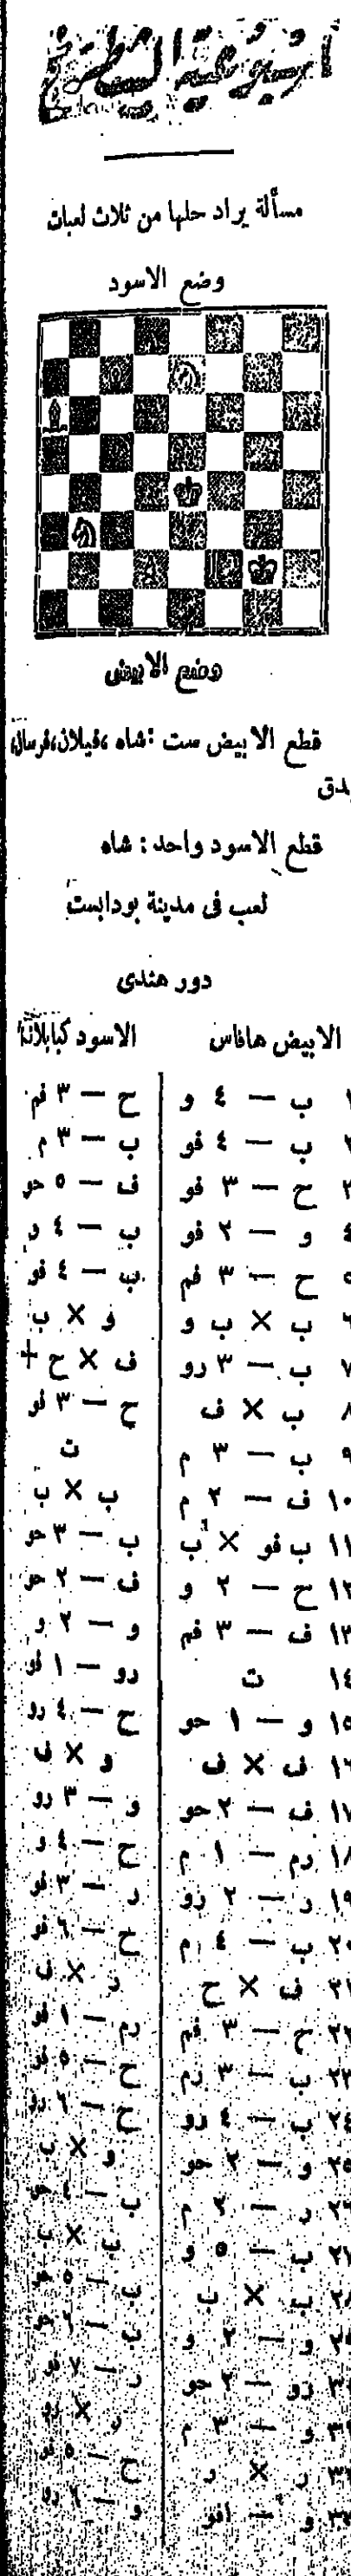 مسألة يراد حلها من ثلاث لعبات
وضع الاسود
وضع الابيض
قطع الابيض ست : شاه ، فيلان ، فرسان ،
قطع الاسود واحد : شاه
لعب فى مدينة بودابست
دور هندى
الابيض هافاس الاسود كبابلانكا
١ ب — ٤ و ح — ٣ فم
٢ ب — ٤ فو ب — ٣ م
٣ ح — ٣ فو ف — ٥ حو
٤ و — ٢ فو ب — ٤ و
٥ ح — ٣ فم ب — ٤ فو
٦ ب × ب و و × ب
٧ ب — ٣ رو ف × ح +
٨ ب × ف ح — ٣ فو
٩ ب — ٣ م ت
١٠ ف — ٢ م ب × ب
١١ ب فو × ب ب — ٣ حو
١٢ ح — ٢ و ف — ٢ حو
١٣ ف — ٣ فم و — ٢ و
١٤ ت رو — ١ فو
١٥ و — ١ حو ح — ٤ رو
١٦ ف × ف و × ف
١٧ ف — ٢ حو و — ٣ رو
١٨ رم — ١ م ح — ٤ و
١٩ ر — ٢ رو ر — ٣ فو
٢٠ ب — ٤ م ح — ٦ فو
٢١ ف × ح ر × ف
٢٢ ح — ٣ فم رم — ١ فو
٢٣ ب — ٣ رم ح — ٥ فو
٢٤ ب — ٤ رو ح — ٦ رو
٢٥ و — ٢ حو و × ب
٢٦ ر — ٢ م ب — ٤ حو
٢٧ ب — ٥ و ب × ب
٢٨ ب × ب ب — ٥ حو
٢٩ و — ٢ و ب — ٦ حو
٣٠ رو — ٢ حو ر — ٧ فو
٣١ و — ٣ م ر × رو
٣٢ ر × ر ح — ٥ فو
٣٣ و — ١فو و — ٦ رو